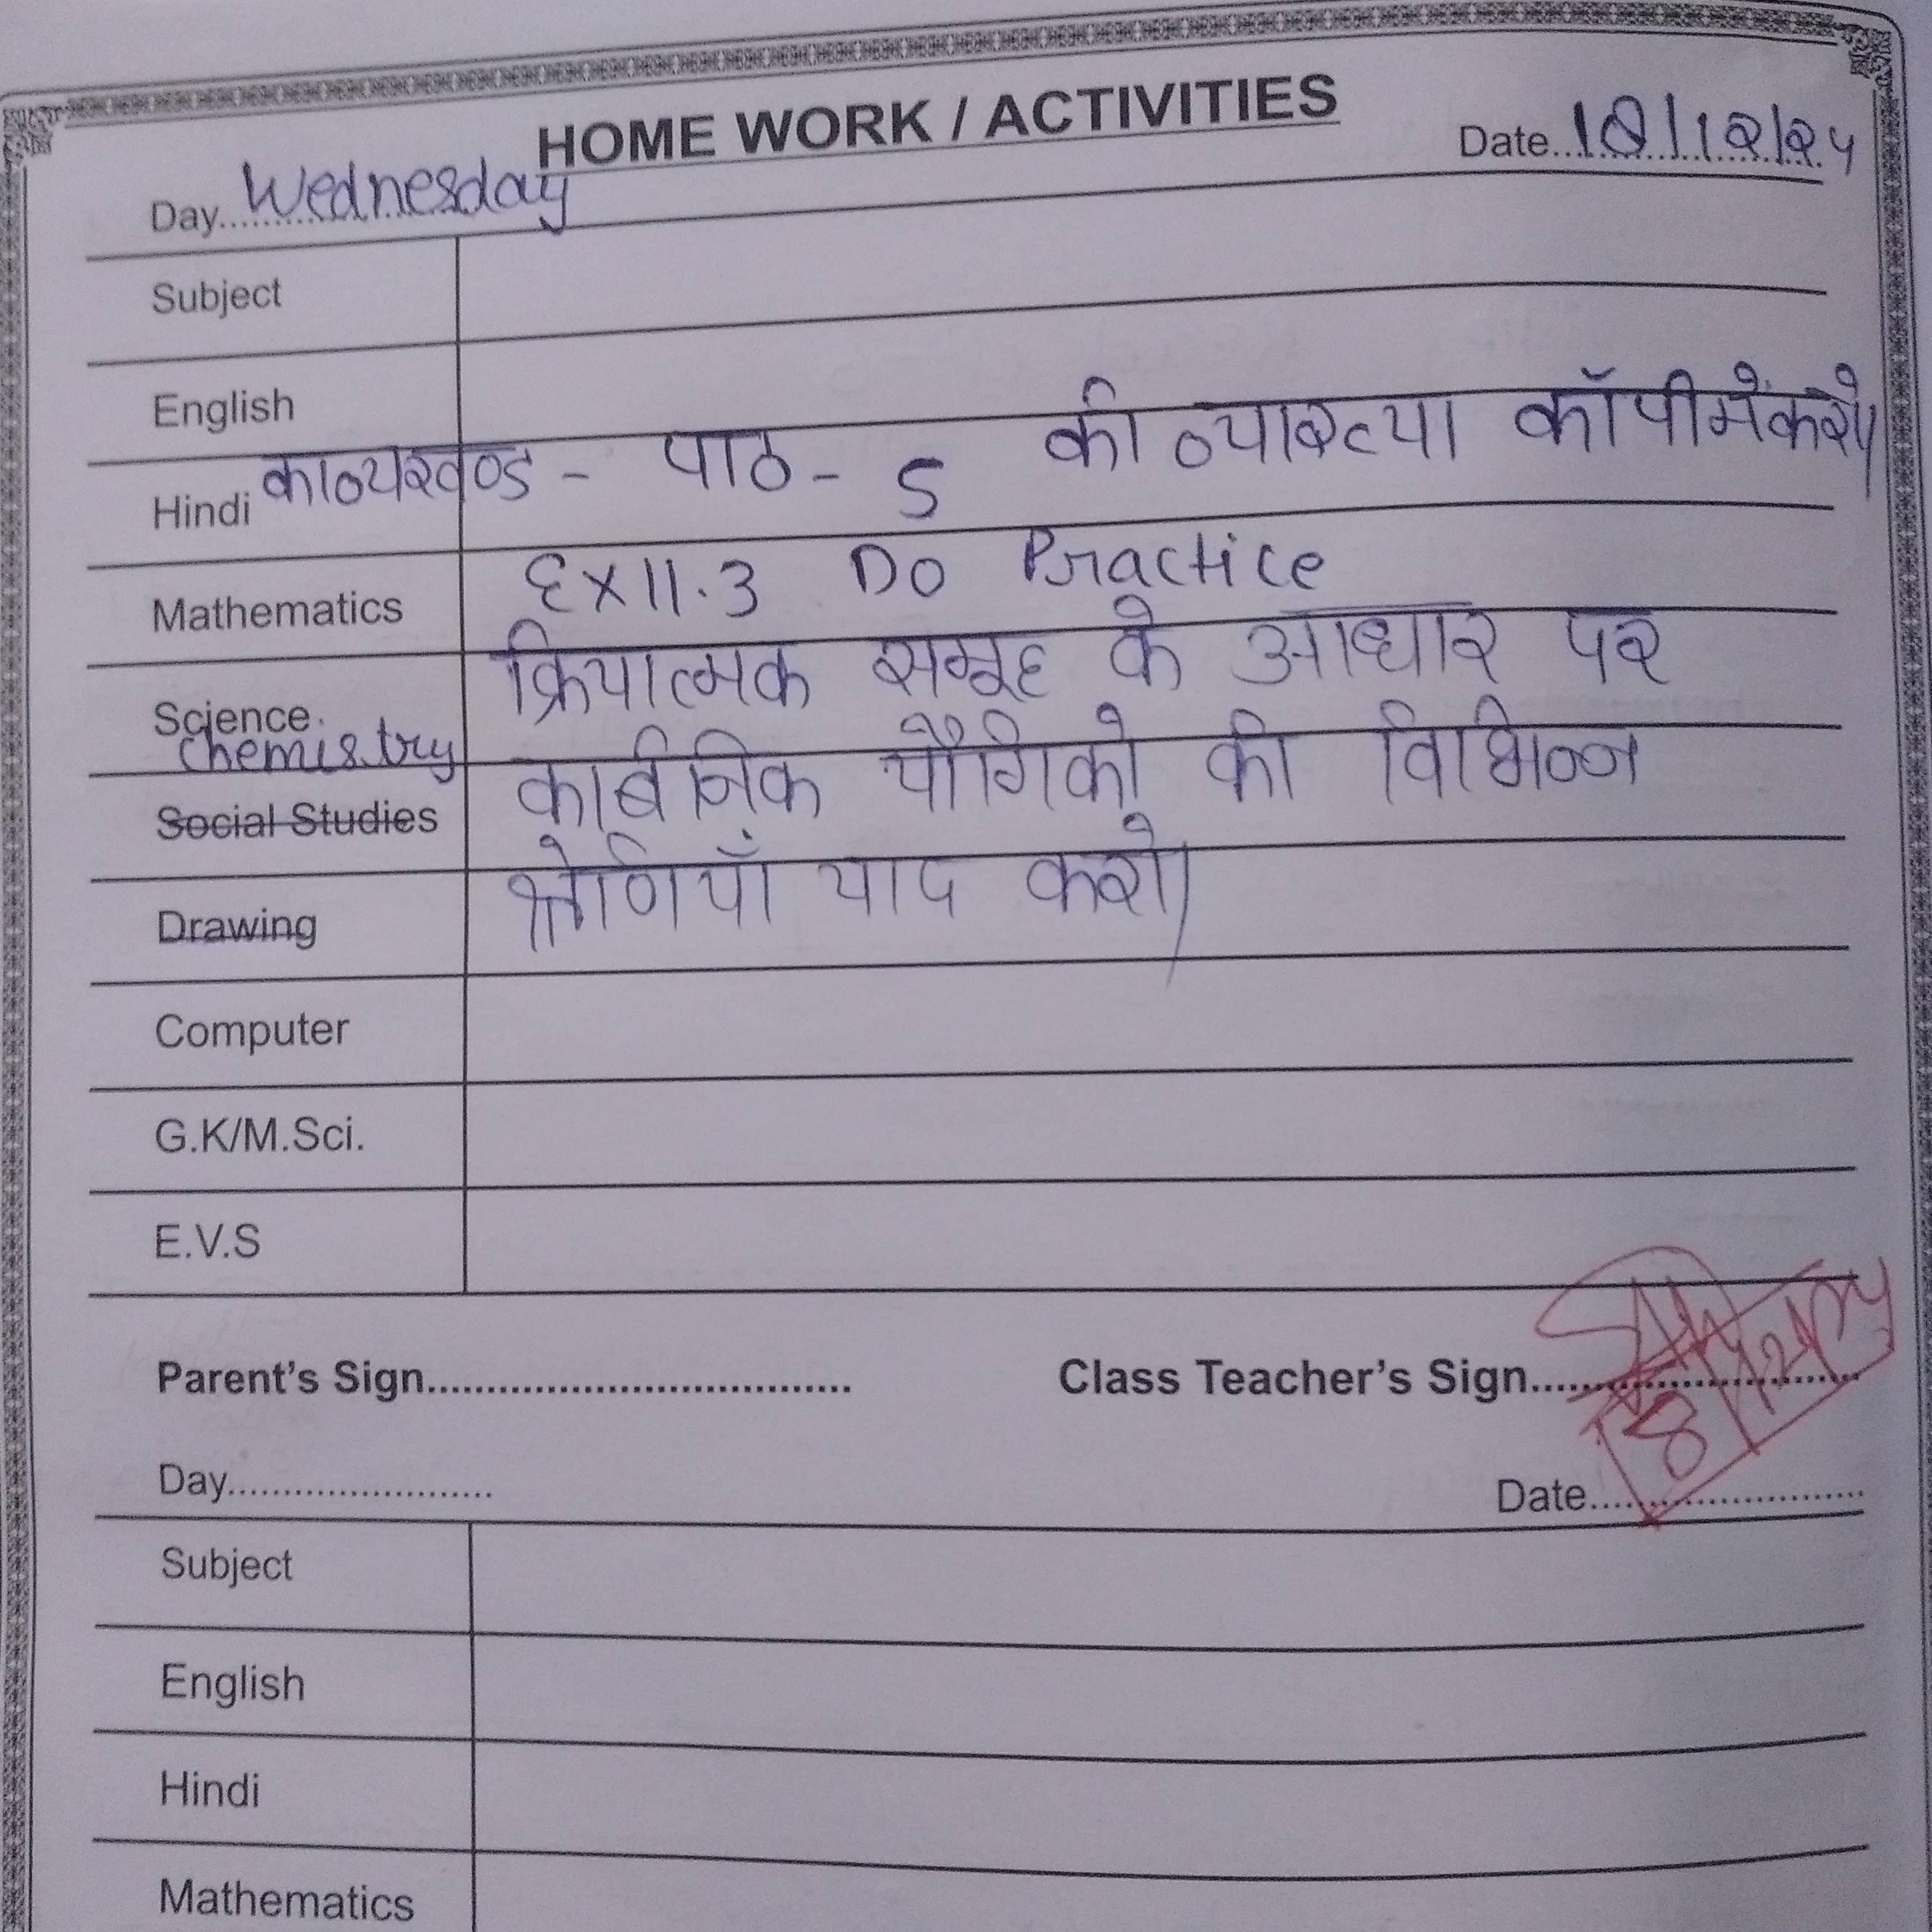 HOME WORK / ACTIVITIES
Day..Wednesday Date..18/12/24
Subject
English
Hindi काव्यखण्ड - पाठ - 5 की व्याख्या कॉपी में करो।
Mathematics Ex 11.3 Do Practice
Science. क्रियात्मक समूह के आधार पर
chemistry
Social Studies कार्बनिक यौगिको की विभिन्न
Drawing श्रेणियाँ याद करो।
Computer
G.K/M.Sci.
E.V.S
Parent's Sign................................... Class Teacher's Sign...........................
Day........................ Date.........................
Subject
English
Hindi
Mathematics